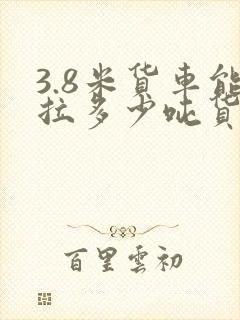 3.8米货車能
拉多少吨货
百里雲初